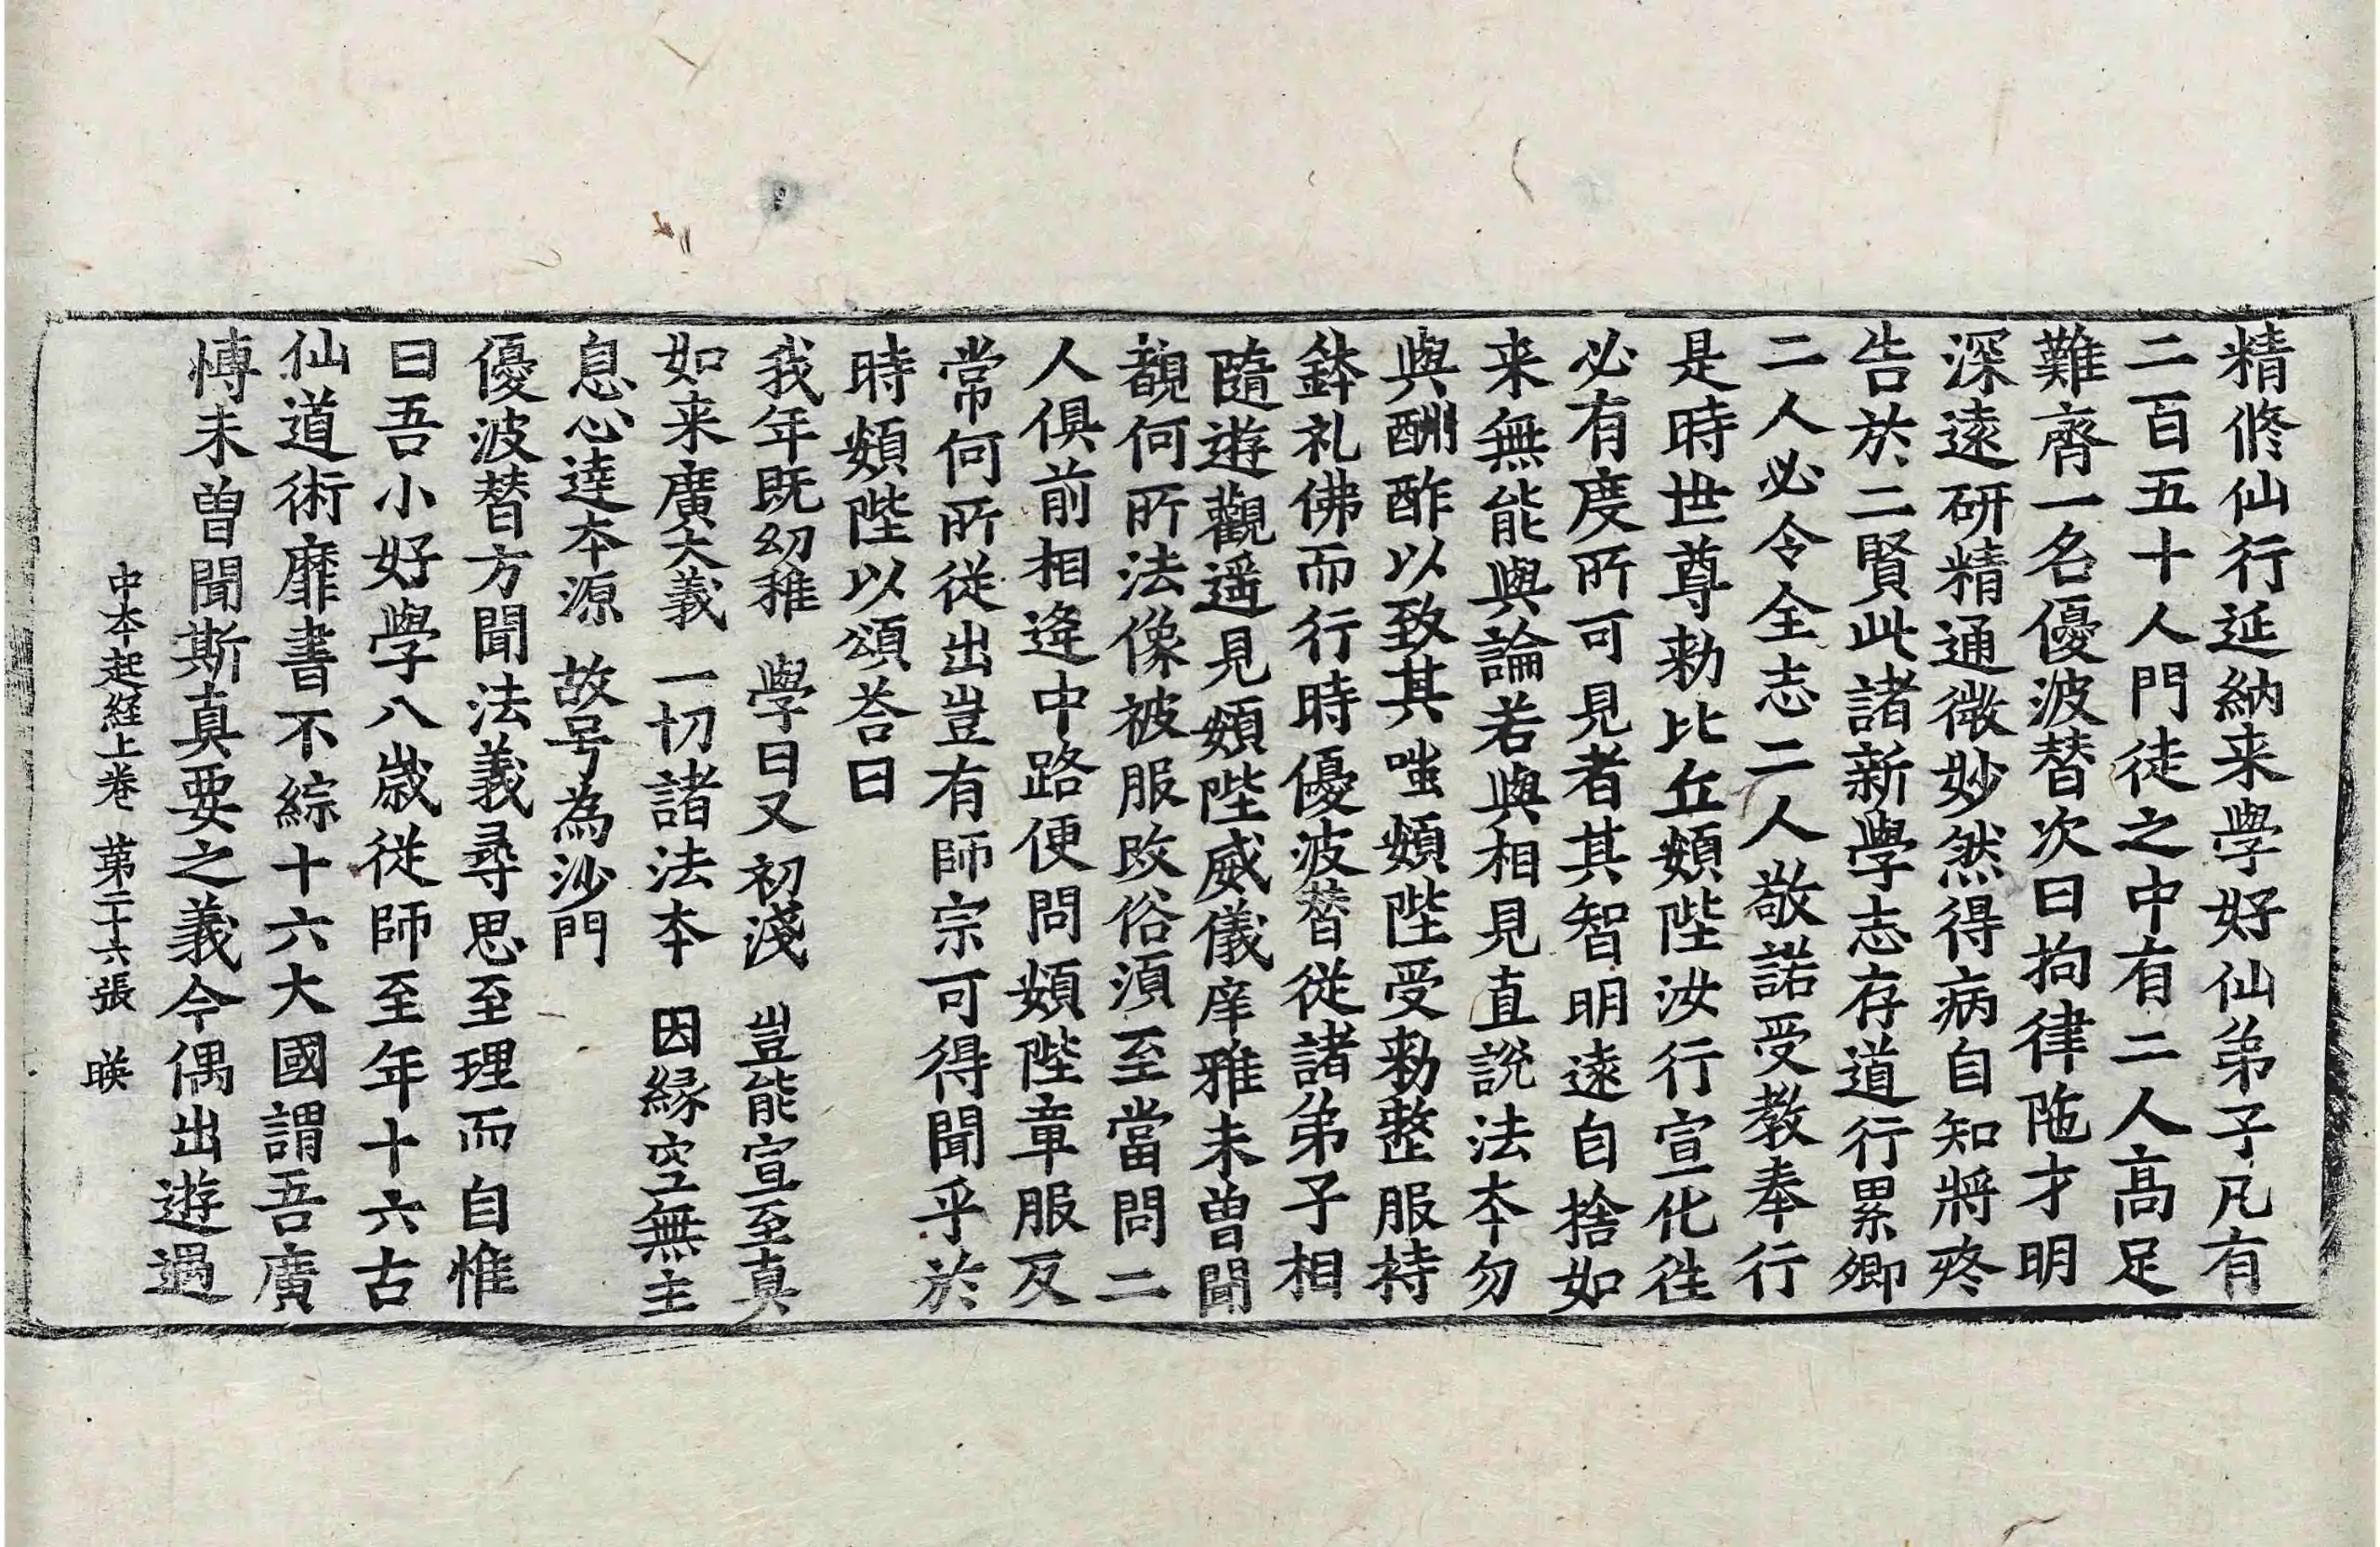 精修仙行延納来學好仙弟子凡有
二百五十人門徒之中有二人高足
難齊一名優波替次曰拘律陁才明
深遠研精通微妙然得病自知將終
告於二賢此諸新學志存道行累卿
二人必令全志二人敬諾受教奉行
是時世尊勑比丘頞陛汝行宣化往
必有度所可見者其智明遠自捨如
来無能與論若與相見直說法本勿
與酬酢以致其嗤頞陛受勑整服持
鉢礼佛而行時優波替從諸弟子相
隨遊觀遥見頞陛威儀庠雅未曽聞
覩何所法像被服改俗湏至當問二
人俱前相逢中路便問頞陛章服反
常何所從出豈有師宗可得聞乎於
時頞陛以頌荅曰
我年既幼稚　學日又初淺　豈能宣至真
如来廣大義　一切諸法本　因緣空無主
息心達本源　故号為沙門
優波替方聞法義尋思至理而自惟
曰吾小好學八歳從師至年十六古
仙道術靡書不綜十六大國謂吾廣
愽未曽聞斯真要之義今偶出遊過
中本起経上卷　第二十六張　暎